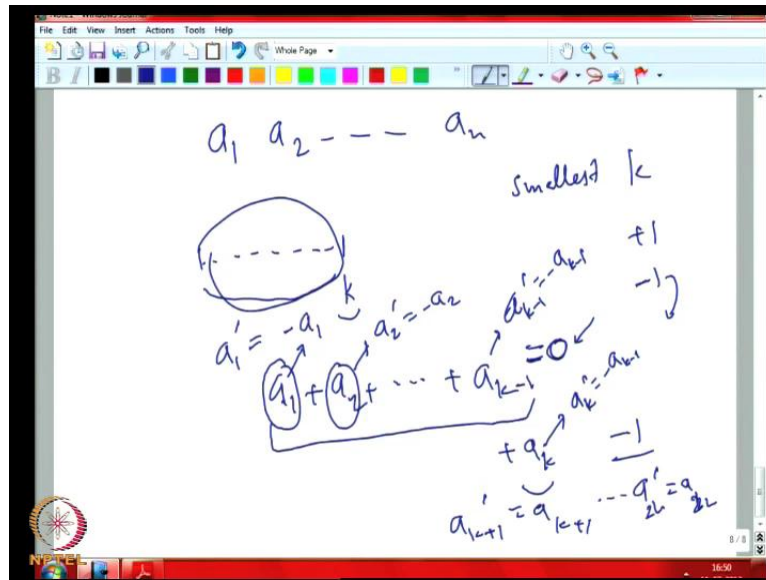 File Edit View Insert Actions Tools Help
Whole Page
B I
a₁ a₂ - - - aₙ
smallest k
+1
-1
k
a₁' = -a₁
a₂' = -a₂
a'ₖ₋₁ = -aₖ₋₁
a₁ + a₂ + ... + aₖ₋₁ = 0
+ aₖ
-1
a'ₖ₊₁ = aₖ₊₁ ... a'₂ₙ = a₂ₙ
NPTEL
8 / 8
16:50